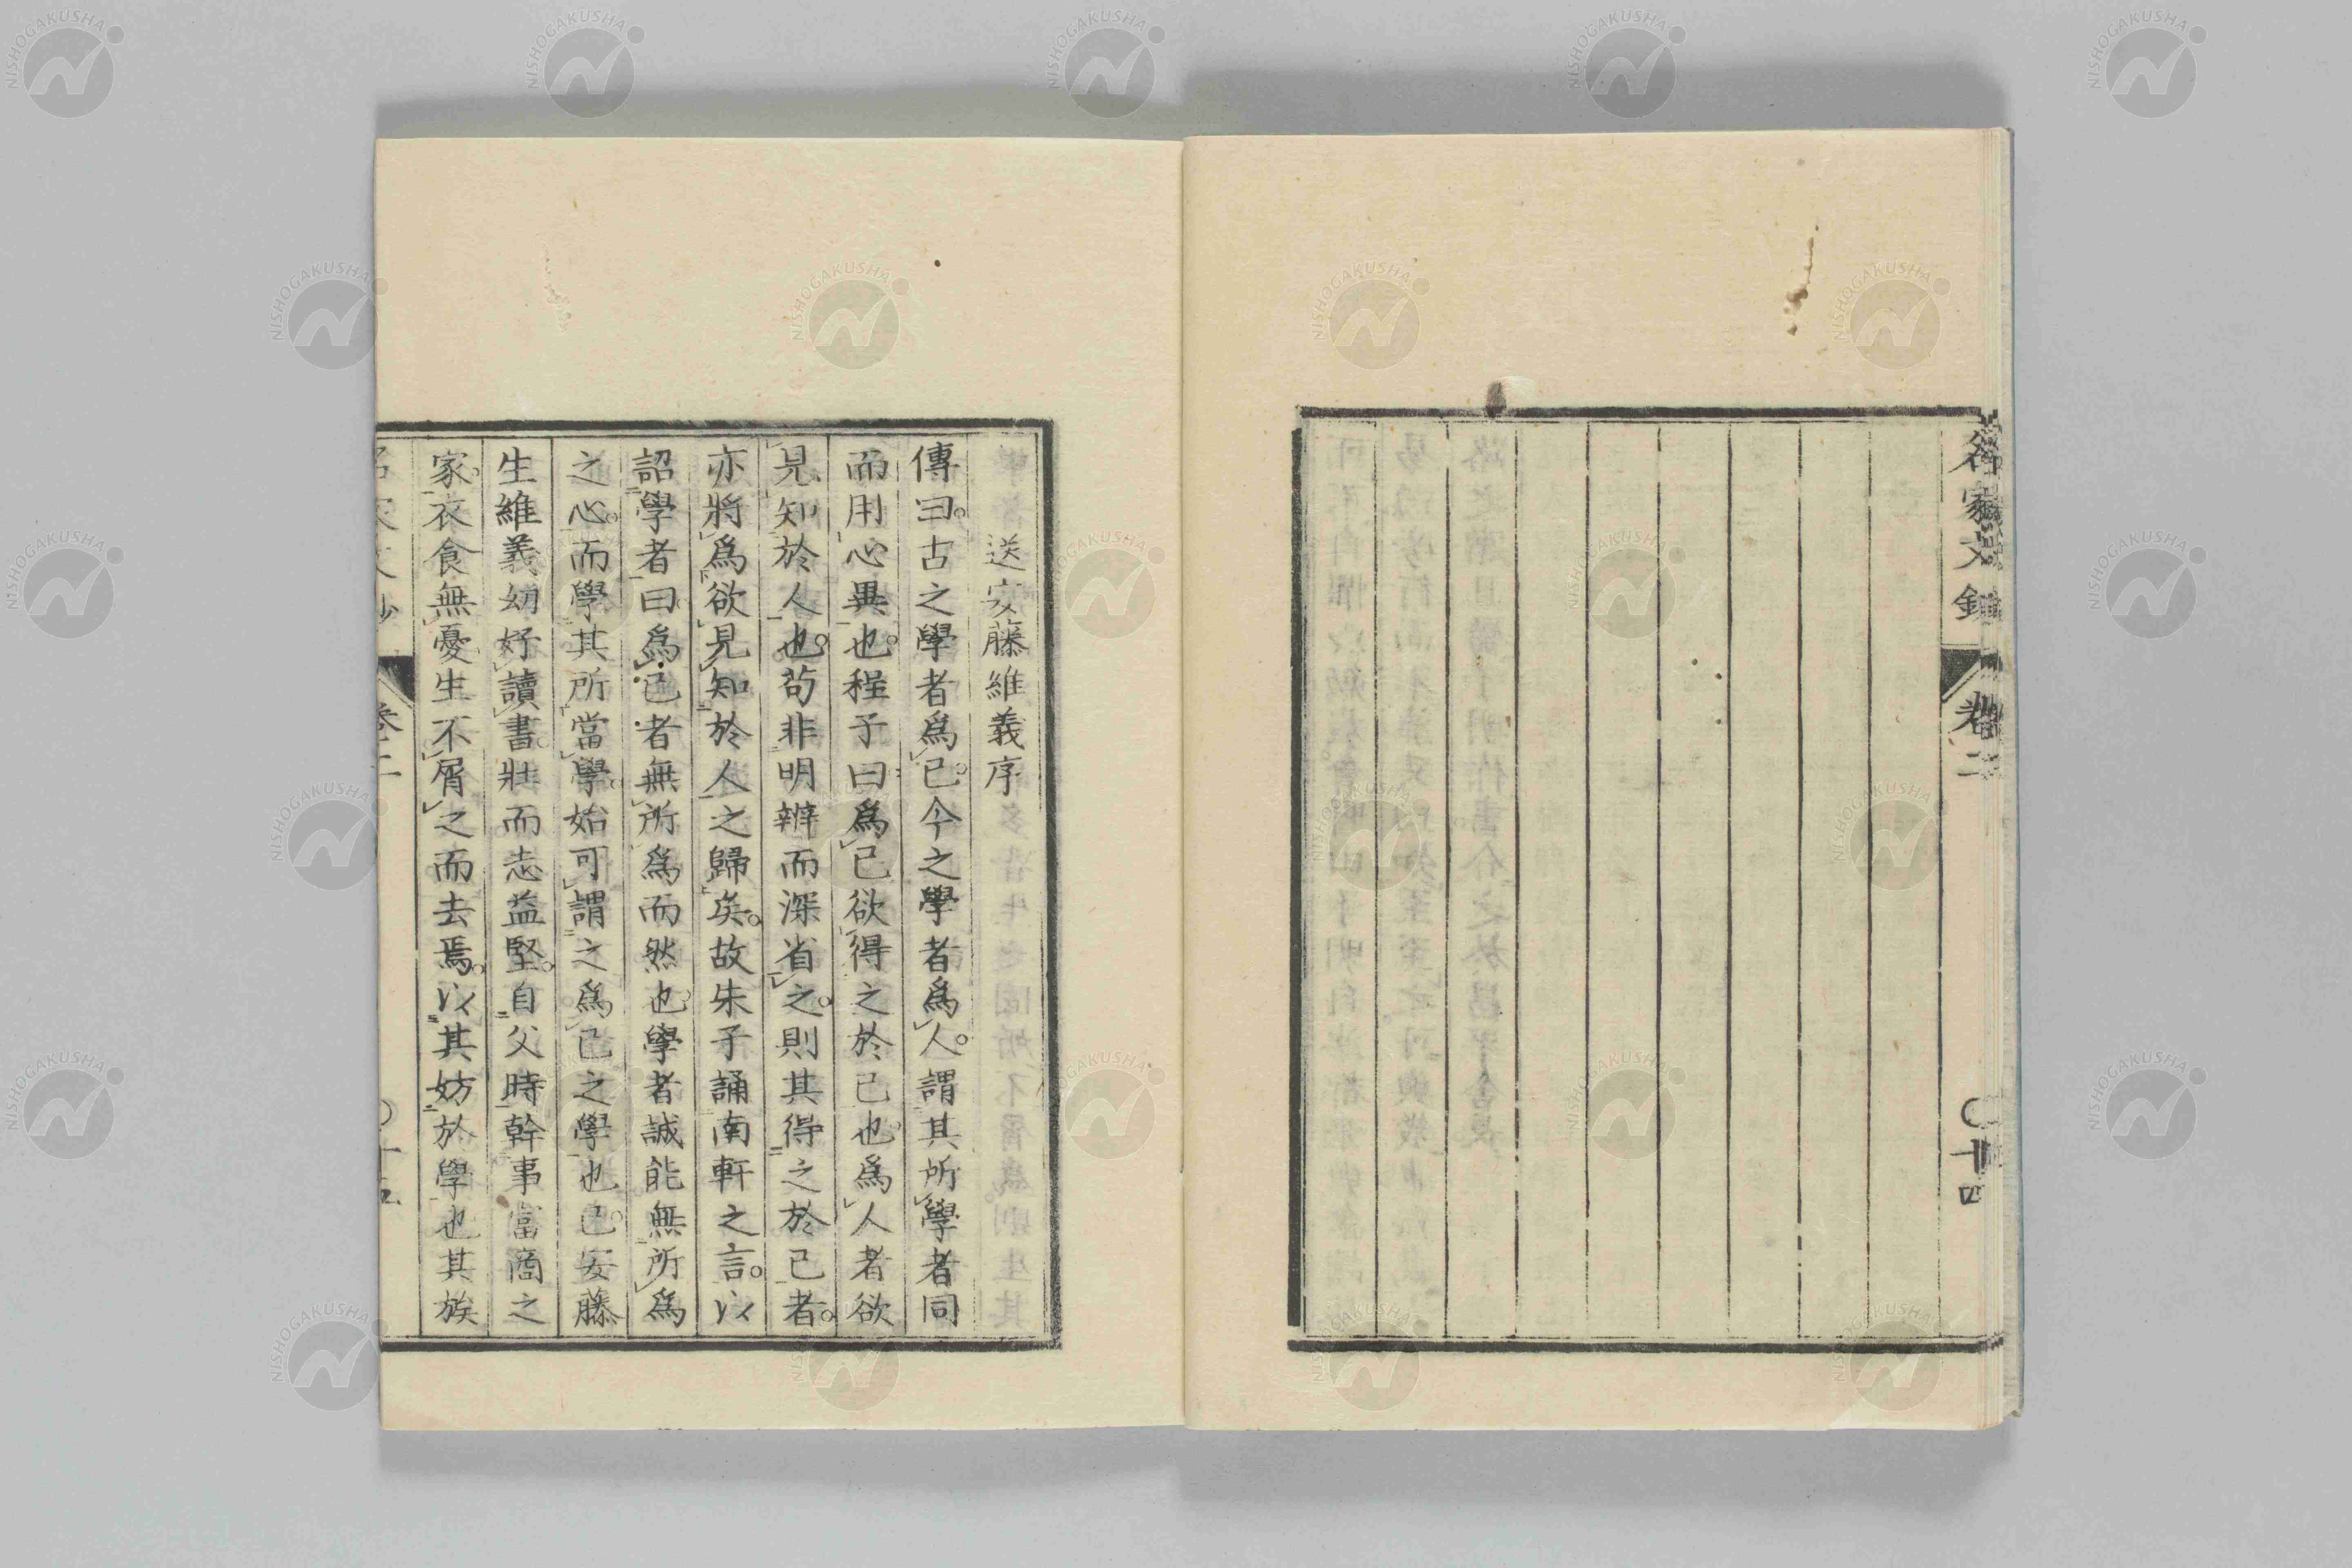 名家文鈔 卷二 〇十四
送安藤維義序
傳曰古之學者爲己今之學者爲人謂其所學者同
而用心異也程子曰爲己欲得之於己也爲人者欲
見知於人也苟非明辨而深省之則其得之於己者
亦將爲欲見知於人之歸矣故朱子誦南軒之言以
詔學者曰爲己者無所爲而然也學者誠能無所爲
之心而學其所當學始可謂之爲己之學也已安藤
生維義幼好讀書壯而志益堅自父時幹事富商之
家衣食無憂生不屑之而去焉以其妨於學也其族
NISHOGAKUSHA